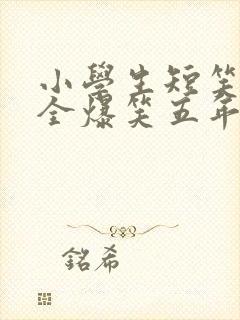 小學生短笑
全爆笑五年
銘希